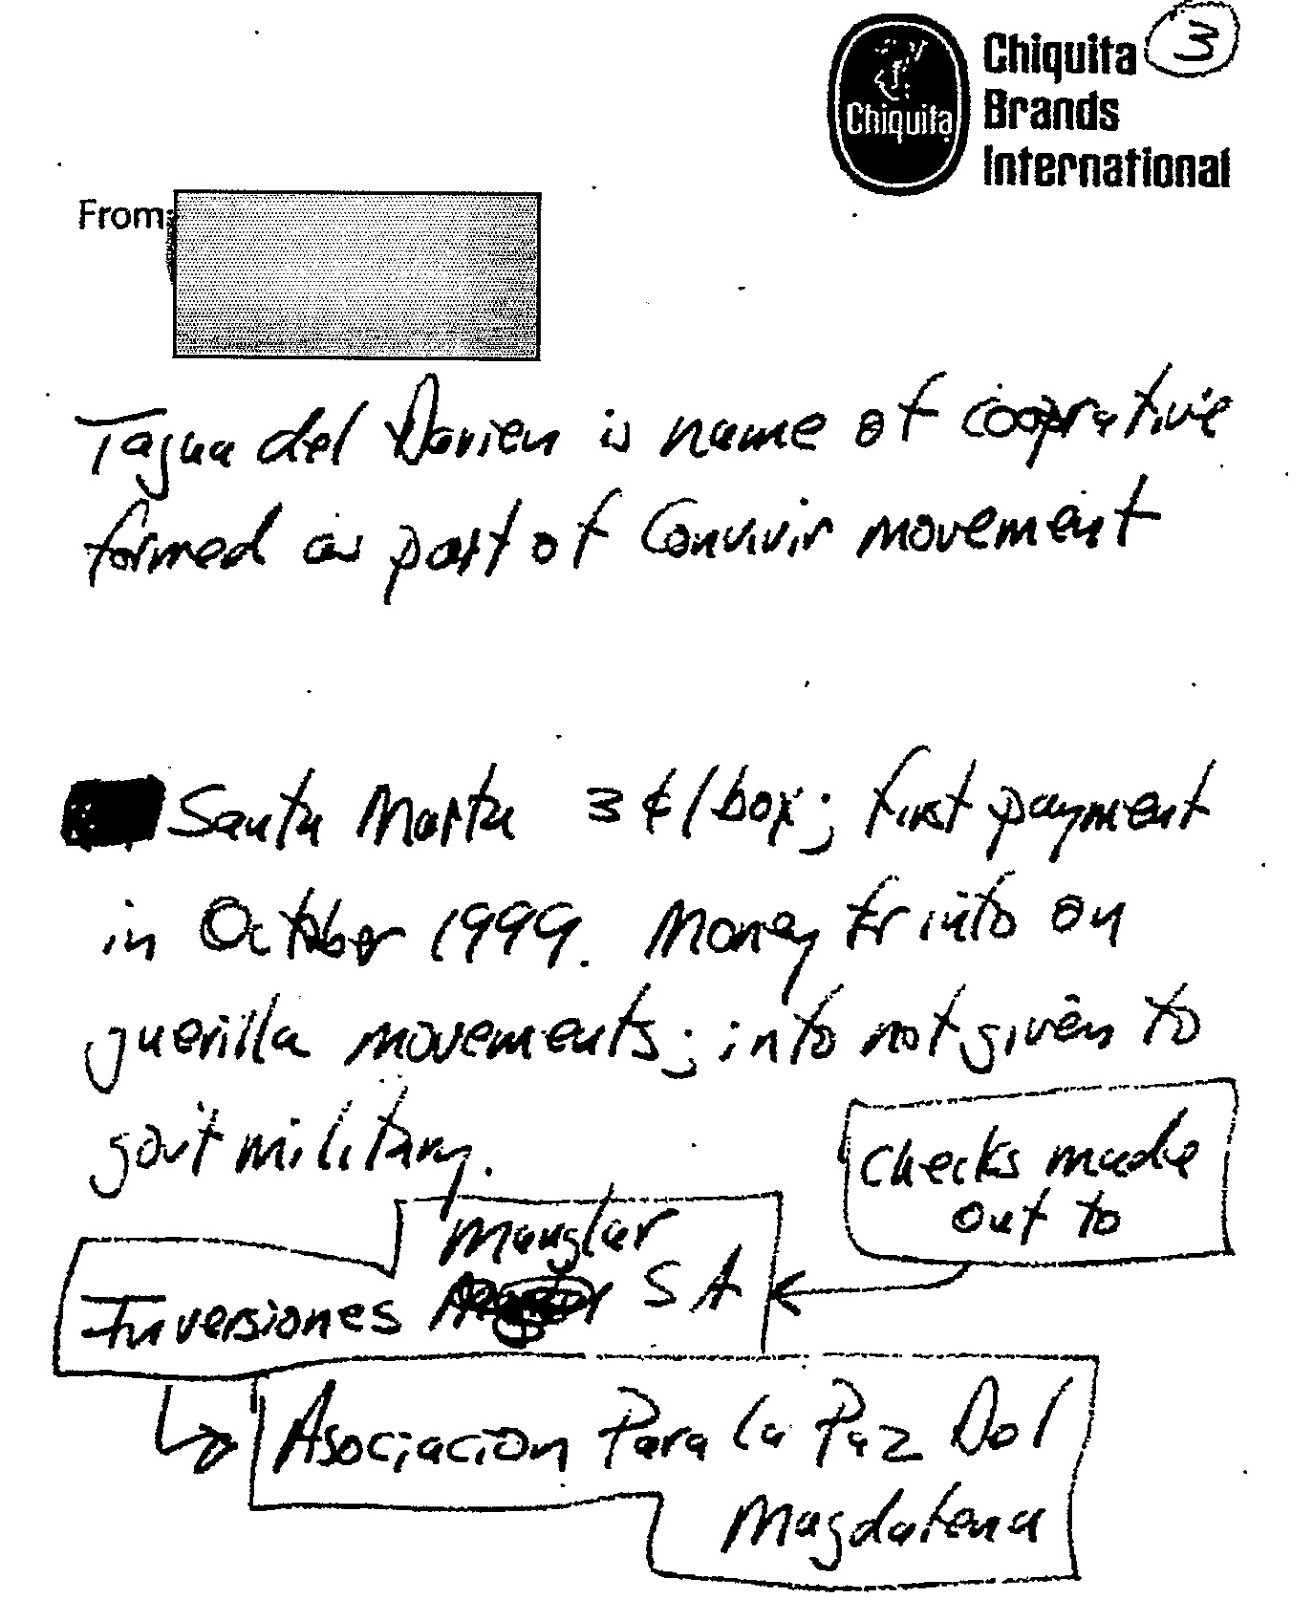 Chiquita
Brands
International
3
Chiquita
From:
Tagua del Darien is name of cooprative
formed as part of Convivir movement
Santa Marta 3¢/box; first payment
in October 1999. Money for info on
guerilla movements; info not given to
gov't military.
Checks made
out to
Manglar
Inversiones SA
Asociacion Para la Paz Del
Magdalena